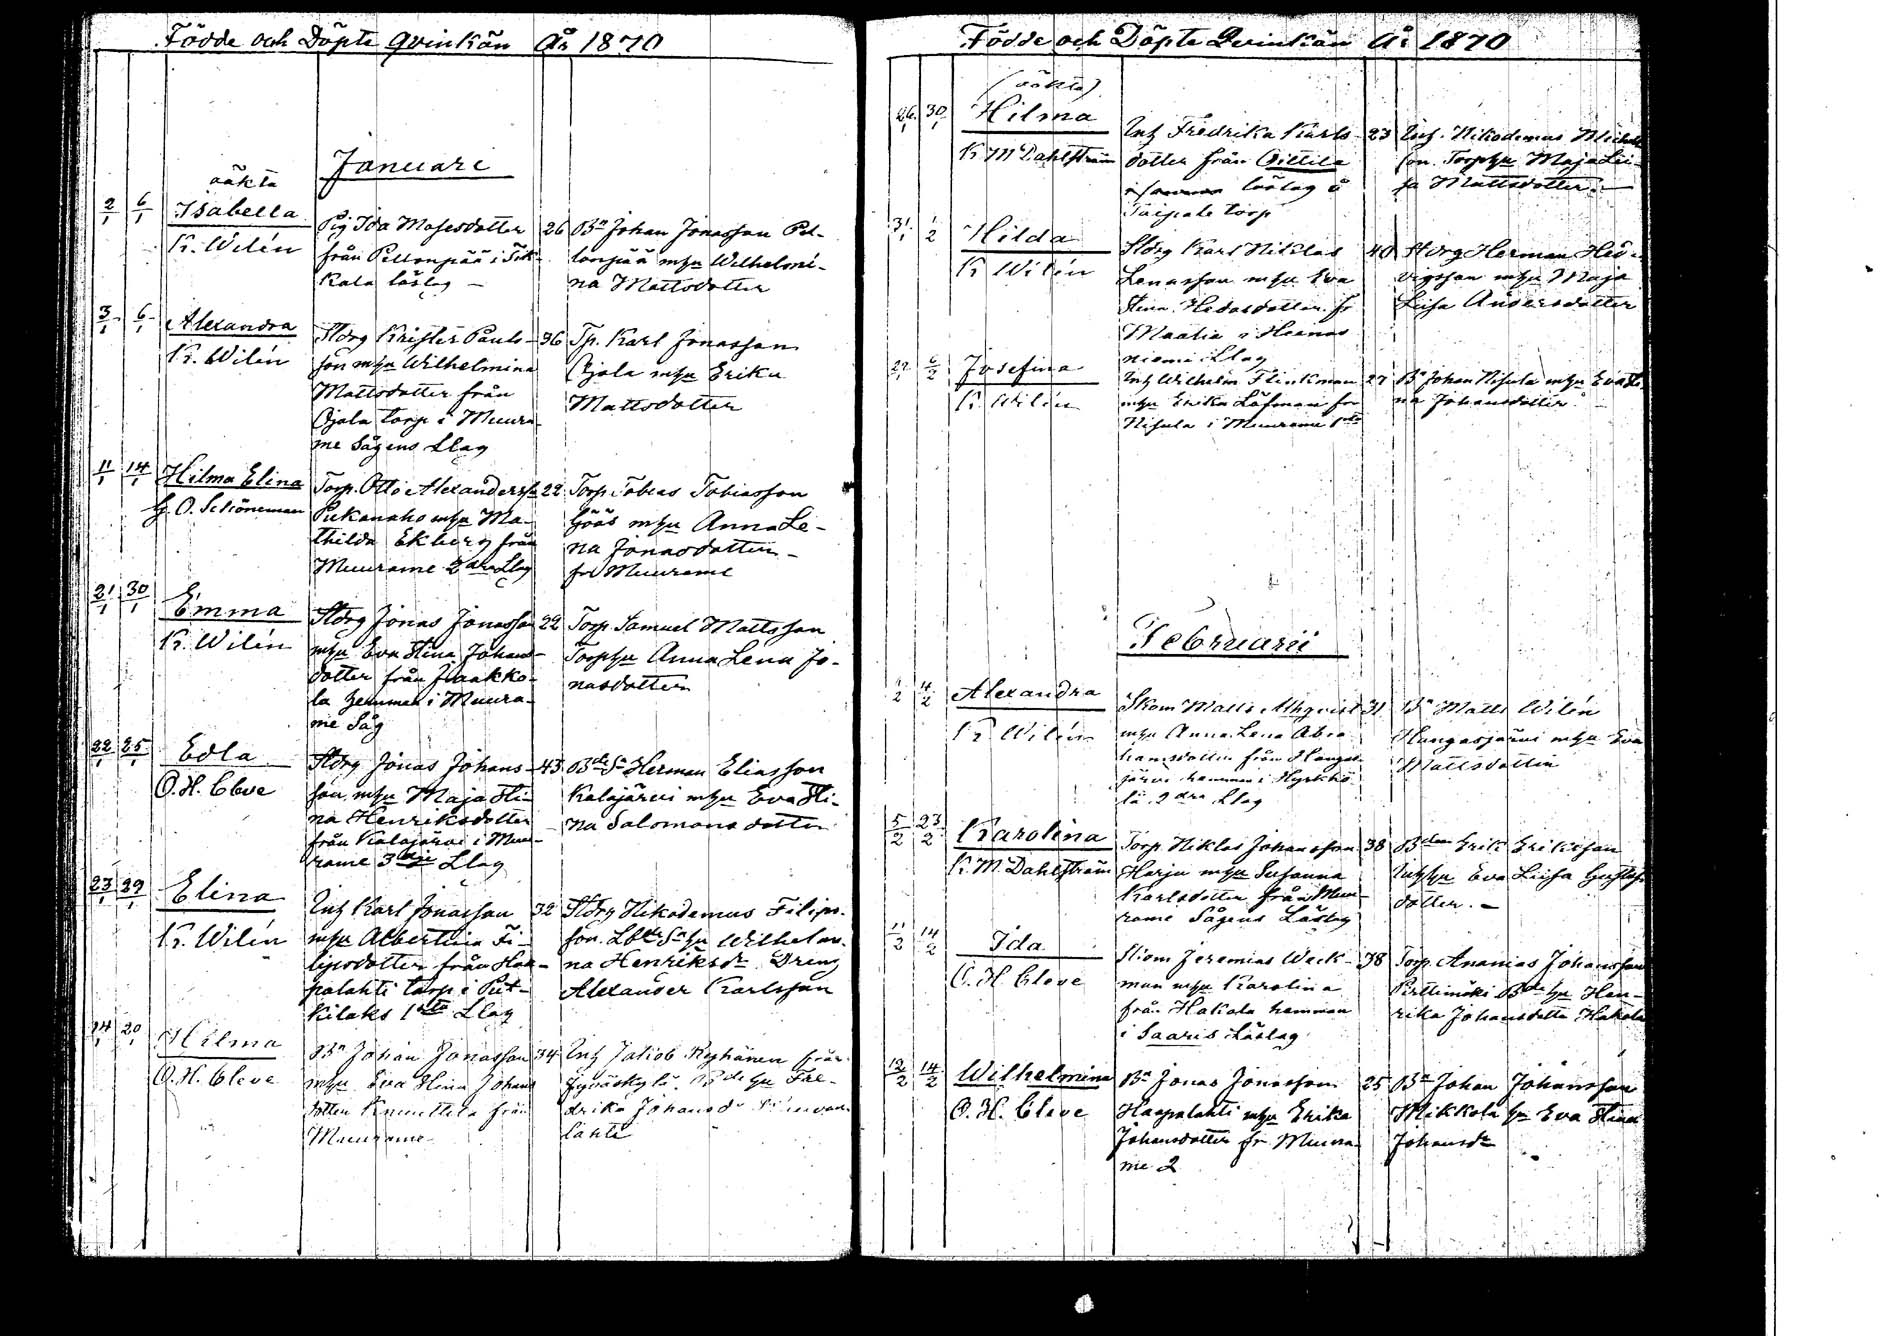 Födde och Döpte Qvinkön År 1870
Januari
2/1 6/1 oäkta
Isabella
K. Wilén
Pig Ida Mosesdotter
från Pellonpää i Tik-
kala låslag –
26
Bn Johan Jonasson Pel-
lonpää m hu Wilhelmi-
na Mattsdotter
3/1 6/1 Alexandra
K. Wilén
Stdrg Krister Pauls-
son m hu Wilhelmina
Mattsdotter från
Ojala torp i Muura-
me Sågens Llag
36
Tp. Karl Jonasson
Ojala m hu Erika
Mattsdotter
11/1 14/1 Hilma Elina
G. O. Schöneman
Torp. Otto Alexanderss
Pukanaho m hu Ma-
thilda Ekberg från
Muurame 2dra Llag
22
Torp Tobias Tobiasson
Löös m hu Anna Le-
na Jonasdotter –
fr Muurame
21/1 30/1 Emma
K. Wilén
Stdrg Jonas Jonasson
m hu Eva Stina Johans-
dotter från Jaakko-
la hemman i Muura-
me Såg
22
Torp Samuel Mattsson
Torphu Anna Lena Jo-
nasdotter
22/1 25/1 Edla
O. H. Cleve
Stdrg Jonas Johans-
son m hu Maja Sti-
na Henriksdotter
från Kalajärvi i Muu-
rame 3dje Llag
43
Bdesn Herman Eliasson
Kalajärvi m hu Eva Sti-
na Salomonsdotter
23/1 29/1 Elina
K. Wilén
Inh Karl Jonasson
m hu Albertina Fi-
lipsdotter från Haa-
palahti torp i Put-
kilaks 1sta Llag
32
Stdrg Nikodemus Filips-
son. Wilhelmi-
na Henriksdr Dreng
Alexander Karlsson
14/1 20/1 Hilma
O. H. Cleve
Bn Johan Jonasson
m hu Eva Stina Johans
dotter Knuuttila från
Muurame
34
Inh Jakob Ryhänen från
Jyväskylä. Bde hu Fre-
drika Johansdr
lahti
Födde och Döpte Qvinkön År 1870
(oäkta)
26/1 30/1 Hilma
K M Dahlström
Inh Fredrika Karls-
dotter från Oittila
låslag å
Taipale torp
23
Inh. Nikodemus Michels
son. Torphu Maja Lii-
sa Mattsdotter –
31/1 1/2 Hilda
K Wilén
Stdrg Karl Niklas
Lenasson m hu Eva
Stina Hedasdotter fr
Maatia i Heinos
niemi Llag
40
Stdrg Herman Hed-
vigsson m hu Maja
Liisa Andersdotter
22/1 6/2 Josefina
K. Wilén
Inh Wilhelm Flinkman
m hu Erika Löfman fr
Nisula i Muurame 1sta
27
Bn Johan Nisula m hu Eva Sti-
na Johansdotter
Februarii
1/2 4/2 Alexandra
K Wilén
Skom Matts Ahqvist
m hu Anna Lena Abra
hamsdotter från Hangas
järvi hemman i Hyrkkö-
lä 2dra Llag
31
Bn Matts Wilén
Hangasjärvi m hu Eva
Mattsdotter
5/2 23/2 Karolina
K. M. Dahlström
Torp Niklas Johansson
Harju m hu Susanna
Karlsdotter från Muu-
rame Sågens Låslag
38
Bden Erik Eriksson
Inhhu Eva Liisa Gustafs
dotter. –
11/2 14/2 Ida
O. H Cleve
Skom Jeremias Weck-
man m hu Karolina
från Hakala hemman
i Saaris Låslag
38
Torp. Ananias Johansson
Perttimäki Bde hu Hen-
rika Johansdotter Hakala
12/2 14/2 Wilhelmina
O. H. Cleve
Bn Jonas Jonasson
Haapalahti m hu Erika
Johansdotter fr Muura
me 2
25
Bn Johan Johansson
Mikkola hu Eva Stina
Johansdr